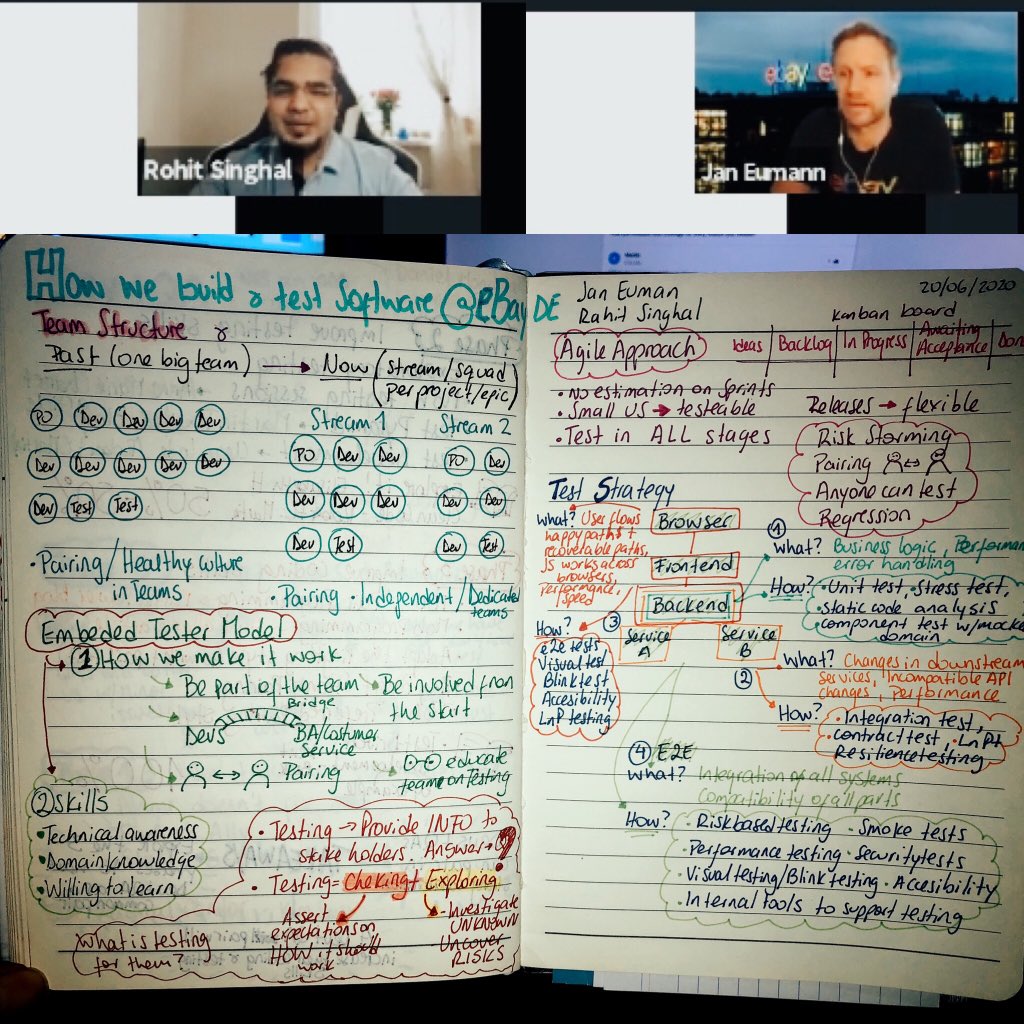 Rohit Singhal
ebay
Jan Eumann
How we build & test Software @eBay DE
Team Structure
Past (one big team) → Now (Stream/squad per project/epic)
PO Dev Dev Dev Dev
Dev Dev Dev Dev Dev
Dev Test Test
Stream 1
PO Dev Dev
Dev Dev Dev
Dev Test
Stream 2
PO Dev
Dev Dev
Dev Test
• Pairing/Healthy culture
in Teams
• Pairing • Independent/Dedicated
teams
Embeded Tester Model
1 How we make it work
Be part of the team
Be involved from
the start
Bridge
Devs BA/Costumer
Service
Pairing
educate
team on Testing
2 Skills
• Technical awareness
• Domain knowledge
• Willing to learn
• Testing → Provide INFO to
stake holders. Answer → ?
• Testing = Cheking + Exploring
Assert
expectations on
HOW it should
work
- Investigate
UNKNOWN
- Uncover
RISKS
What is testing
for them?
Jan Euman
Rahit Singhal
20/06/2020
Kanban board
Agile Approach
Ideas | Backlog | In Progress | Awaiting Acceptance | Don
• No estimation on Sprints
• Small US → testeable
• Test in ALL stages
Releases → flexible
Risk Storming
Pairing
Anyone can test
Regression
Test Strategy
What? User flows
happy paths +
recoverable paths,
JS works across
browsers,
performance,
speed
Browser
Frontend
Backend
Service A
Service B
1
What? Business logic, Performan
error handling
How? • Unit test, stress test,
• static code analysis
• component test w/mocke
domain
3
How?
e2e tests
Visual test
Blink test
Accesibility
LnP testing
2
What? Changes in downstream
services, Incompatible API
changes, Performance
How? • Integration test,
• contract test, • LnP+
Resilience testing
4 E2E
What? Integration of all systems
Compatibility of all parts
How? • Risk based testing • Smoke tests
• Performance testing • Security tests
• Visual testing/Blink testing • Accesibility
• Internal tools to support testing